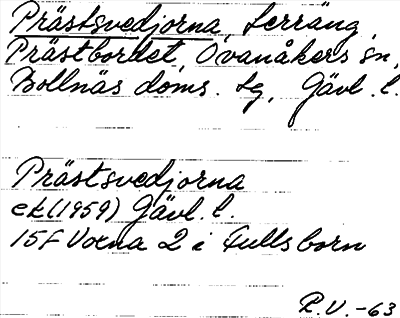 Prästsvedjorna, terräng,
Prästbordet, Ovanåkers sn,
Bollnäs doms. tg, Gävl. l.
Prästsvedjorna
ek (1959) Gävl. l.
15F Voxna 2 i Fullsborn
R.V. -63